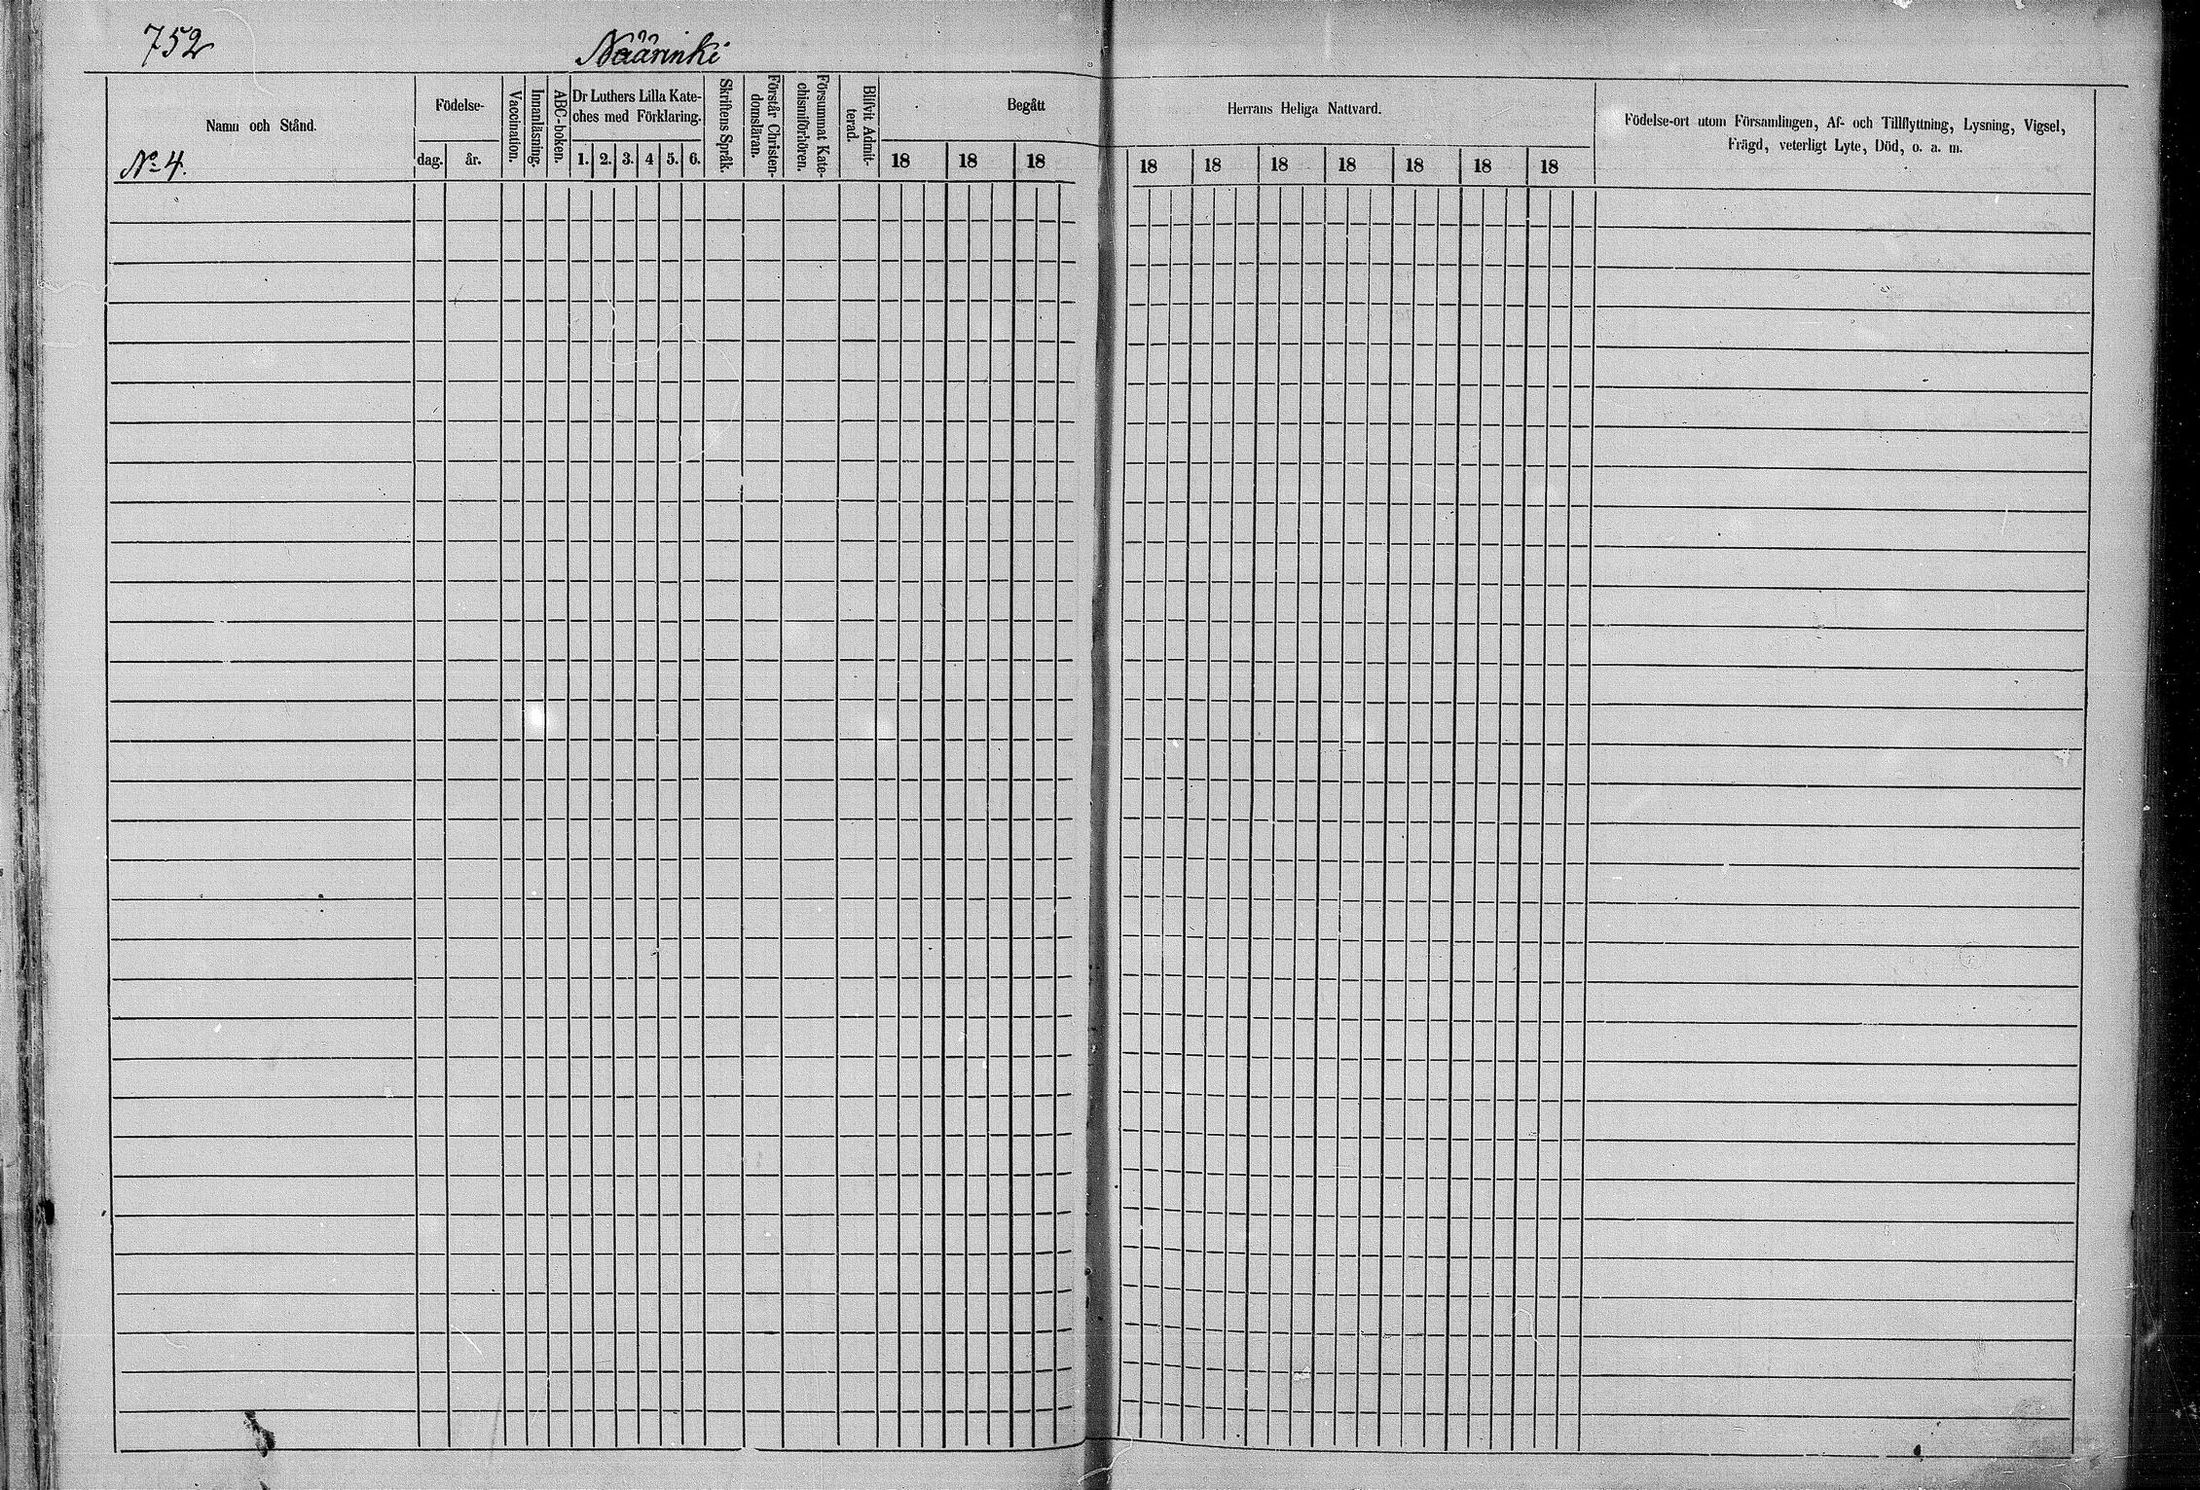 752
Näärinki
Namn och Stånd.
No 4.
Födelse-
dag.
år.
Vaccination.
Innanläsning.
ABC-boken.
Dr Luthers Lilla Kate-
ches med Förklaring.
1. 2. 3. 4 5. 6.
Skriftens Språk.
Förstår Christen-
domsläran.
Försummat Kate-
chismiförhören.
Blifvit Admit-
terad.
Begått
18 18 18
Herrans Heliga Nattvard.
18 18 18 18 18 18 18
Födelse-ort utom Församlingen, Af- och Tillflyttning, Lysning, Vigsel,
Frägd, veterligt Lyte, Död, o. a. m.